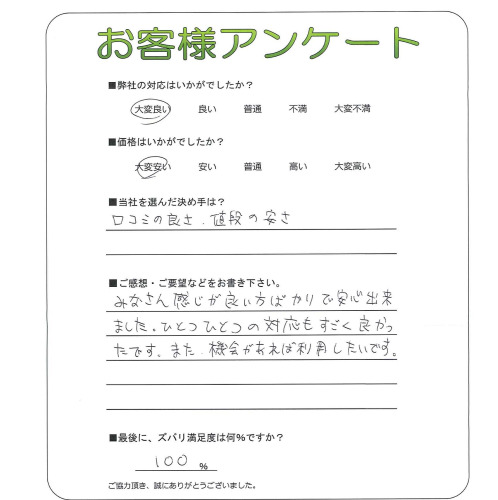 お客様アンケート
■弊社の対応はいかがでしたか？
大変良い 良い 普通 不満 大変不満
■価格はいかがでしたか？
大変安い 安い 普通 高い 大変高い
■当社を選んだ決め手は？
口コミの良さ．値段の安さ
■ご感想・ご要望などをお書き下さい。
みなさん感じが良い方ばかりで安心出来
ました。ひとつひとつの対応もすごく良かっ
たです。また．機会があれば利用したいです。
■最後に、ズバリ満足度は何％ですか？
100 ％
ご協力頂き、誠にありがとうございました。